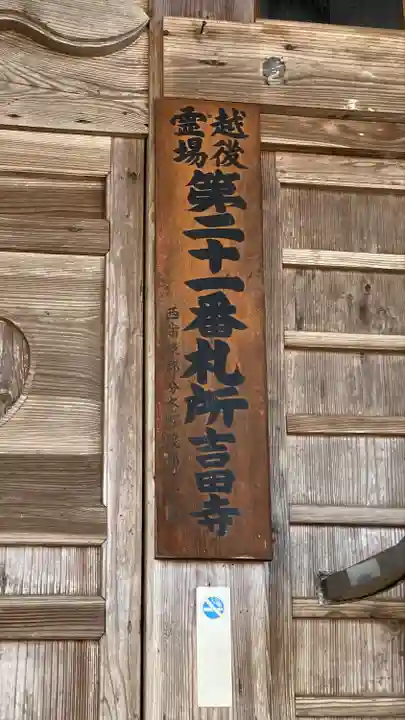 越後
霊場
第二十一番札所吉田寺